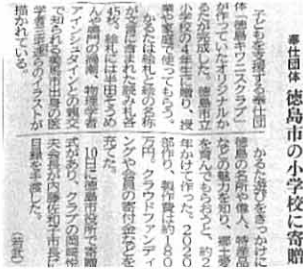 奉仕団体 徳島市の小学校に寄贈
子どもを支援する奉仕団
体「徳島キワニスクラブ」
が作っていたオリジナルか
るたが完成した。徳島市立
小学校の4年生に贈り、授
業や家庭で使ってもらう。
かるたは絵札と絵の名称
が文言に含まれた読み札各
45枚。絵札には半田そうめ
んや鳴門の渦潮、物理学者
アインシュタインとの親交
で知られる美馬市出身の医
学者三宅速らのイラストが
描かれている。
かるた遊びをきっかけに
徳島の名所や偉人、特産品
などの魅力を知り、郷土愛
を育んでもらおうと、約2
年かけて作った。2020
部作り、製作費は約180
万円。クラウドファンディ
ングや会員の寄付金などを
充てた。
10日に徳島市役所で寄贈
式があり、クラブの岡崎悦
夫会長が内藤佐和子市長に
目録を手渡した。